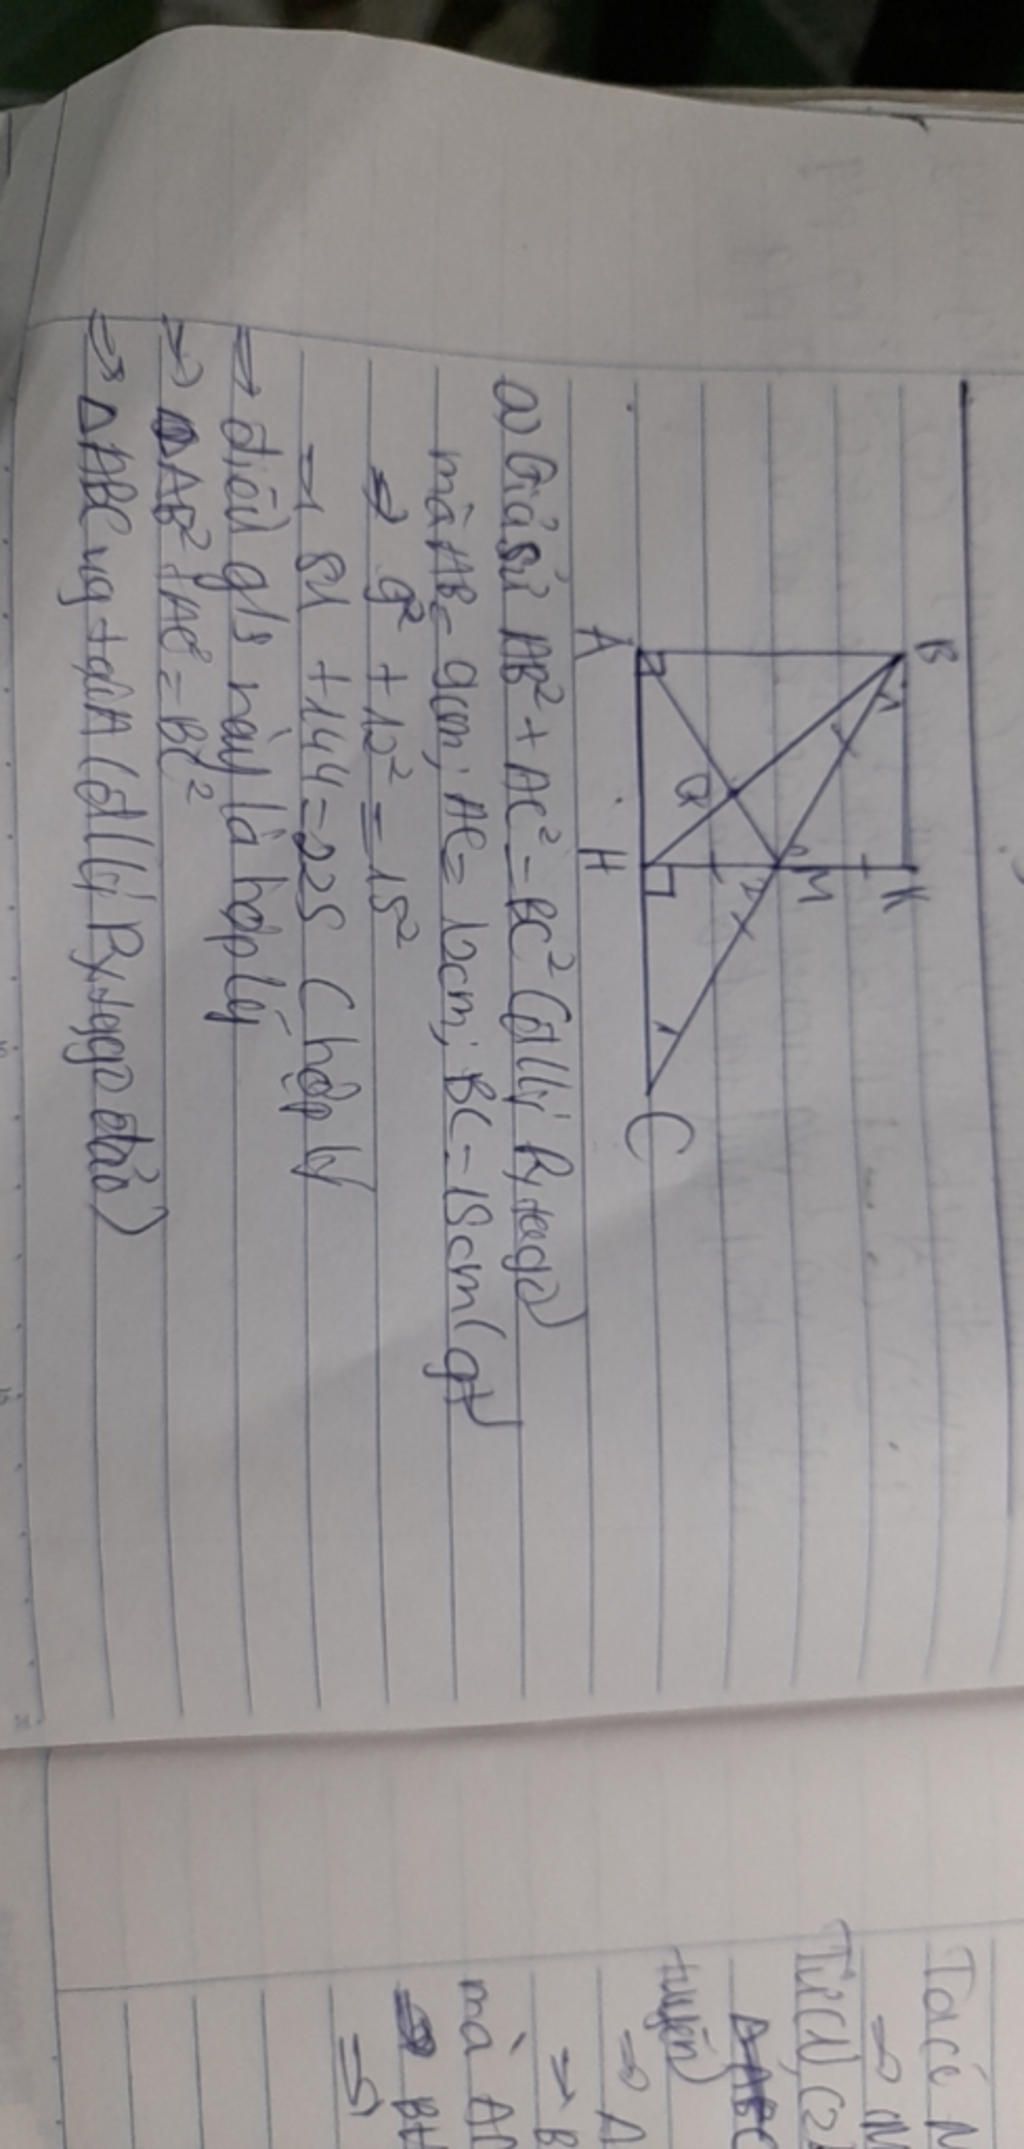 B
K
M
A
Q
H
C
a) Giả sử AB² + AC² = BC² (đ/lý Pytago)
mà AB = 9cm; AC = 12cm; BC = 15cm (gt)
=> 9² + 12² = 15²
=> 81 + 144 = 225 (hợp lý
=> điều g/s này là hợp lý
=> AB² + AC² = BC²
=> ΔABC vg tại A (đ/lý Pytago đảo)
Ta có
=>
Từ (1), (2)
tuyến)
=> A
=> B
mà
=> BH
=>